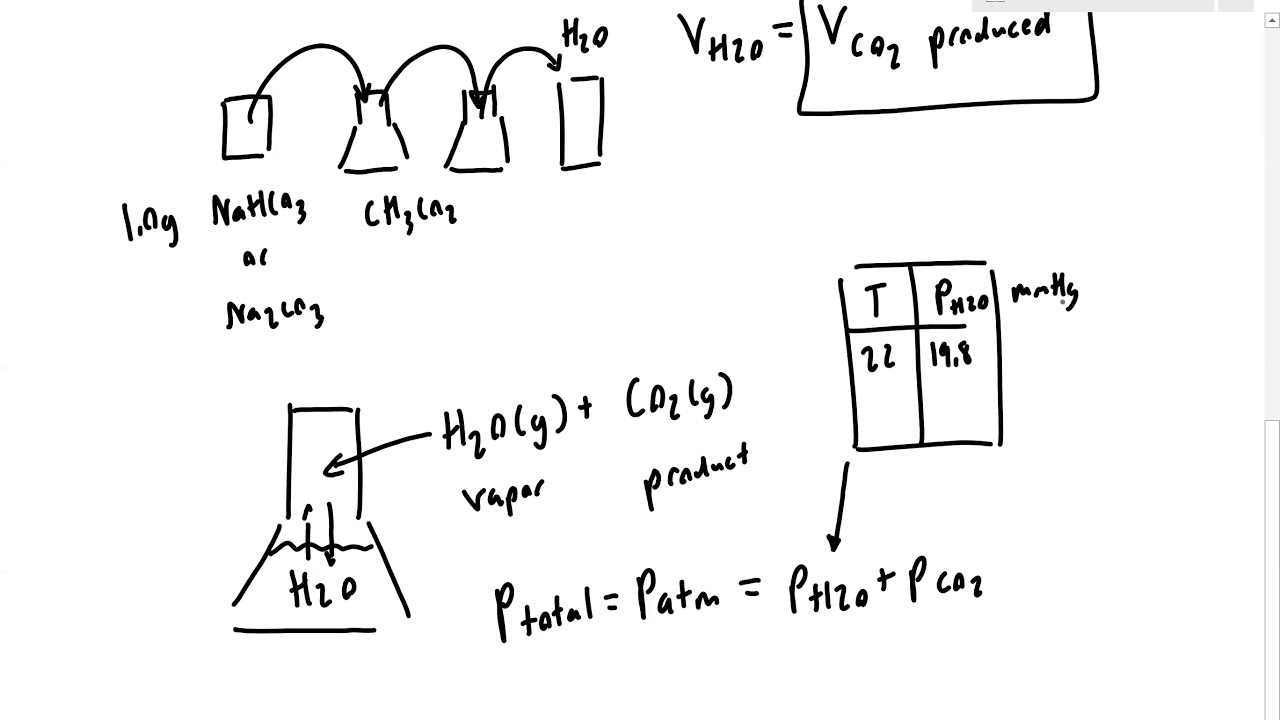 H2O
V H2O = V CO2 produced
1.0g NaHCO3 CH3CO2
or
Na2CO3
T P H2O mmHg
22 19.8
H2O(g) + CO2(g)
vapor product
H2O
Ptotal = Patm = P H2O + P CO2